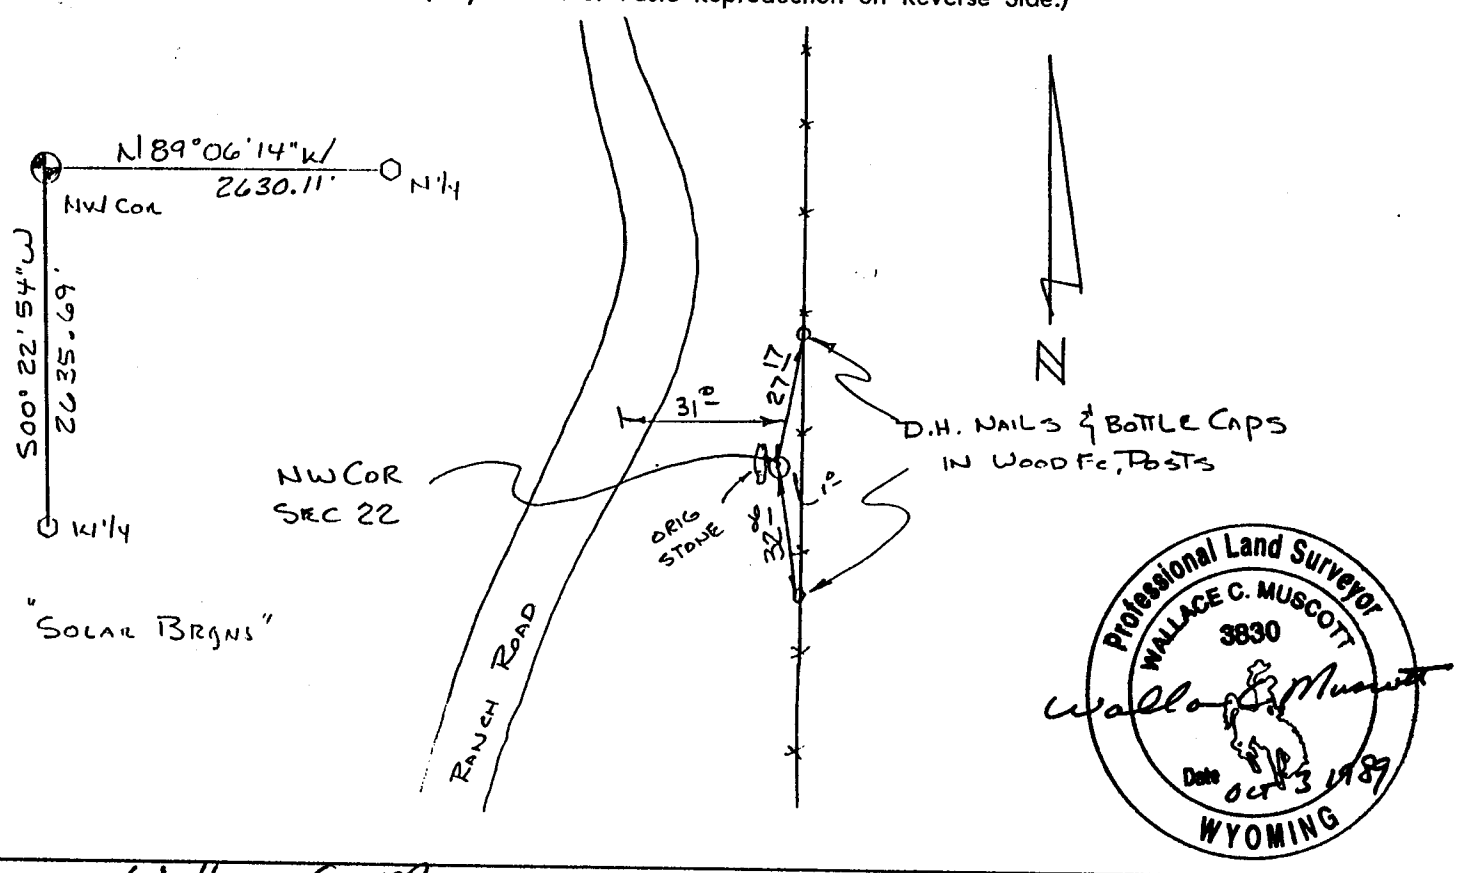 Reproduction on Reverse Side.)
N89°06'14"W
2630.11'
N1/4
NW COR
S00°22'54"W
2635.69'
W1/4
"SOLAR BRGNS"
NW COR
SEC 22
31.0
27.17
32.8
1.0
ORIG
STONE
RANCH ROAD
N
D.H. NAILS & BOTTLE CAPS
IN WOOD FC. POSTS
Professional Land Surveyor
WALLACE C. MUSCOTT
3830
Wallace C Muscott
Date Oct 3 1989
WYOMING